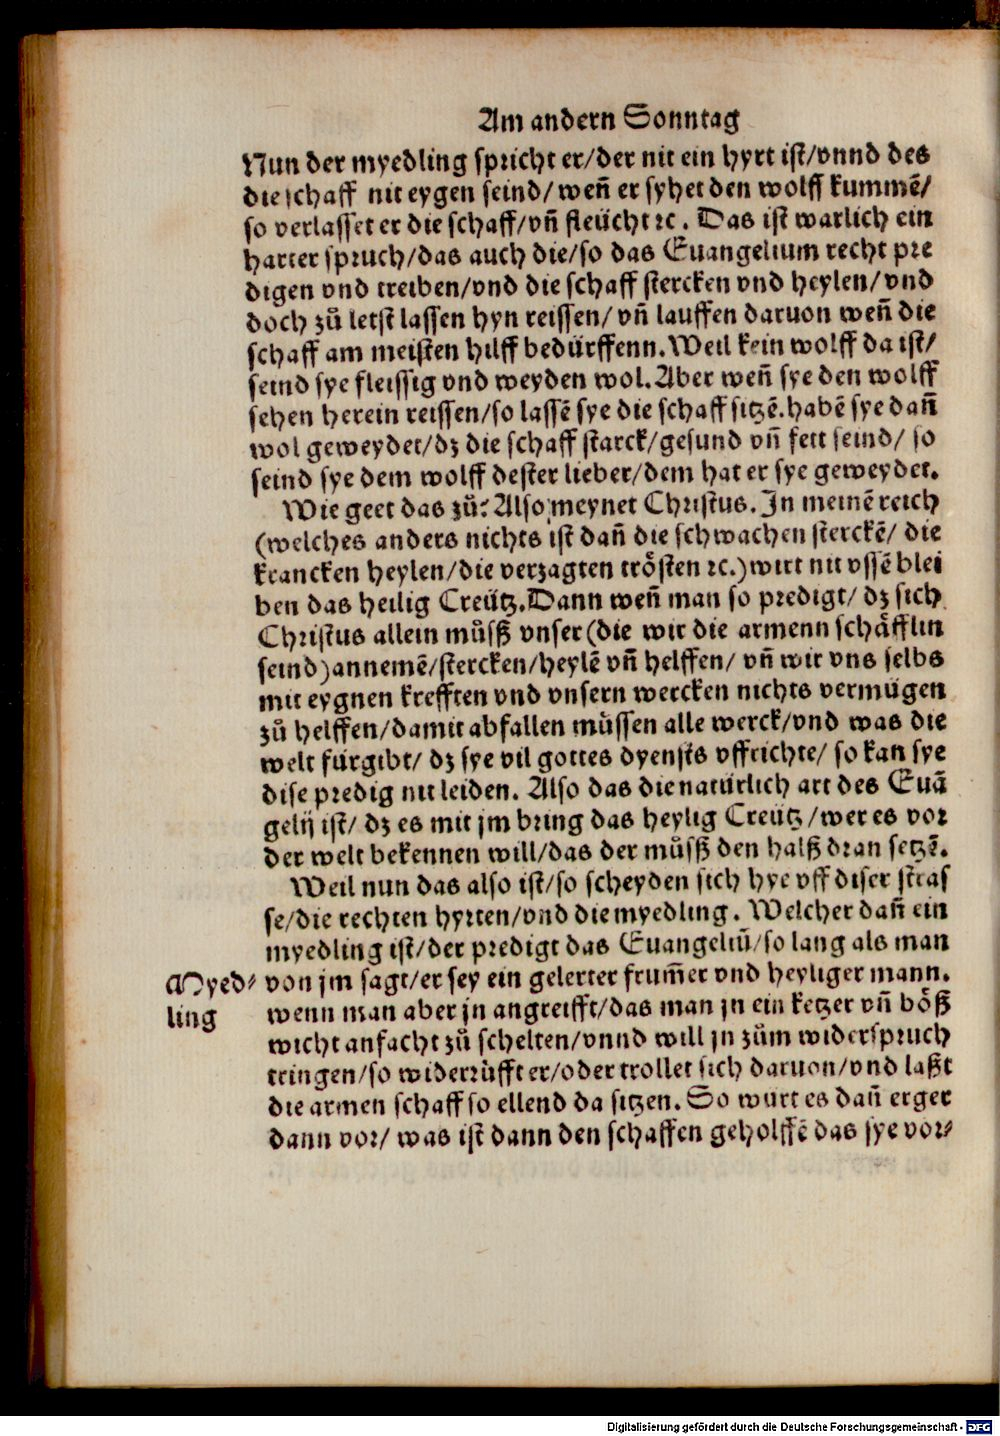 Am andern Sonntag
Nun der myedling spricht er/der nit ein hyrt ist/vnnd des
die schaff nit eygen seind/ weñ er syhet den wolff kummẽ/
so verlasset er die schaff/vñ fleücht ꝛc. Das ist warlich ein
harter spruch/das auch die/so das Euangelium recht pre
digen vnd treiben/vnd die schaff stercken vnd heylen/vnd
doch zů letst lassen hyn reissen/ vñ lauffen daruon weñ die
schaff am meisten hilff bedürffenn. Weil kein wolff da ist/
seind sye fleissig vnd weyden wol. Aber weñ sye den wolff
sehen herein reissen/so lassẽ sye die schaff sitzẽ. habẽ sye dañ
wol geweydet/dz die schaff starck/gesund vñ fett seind/ so
seind sye dem wolff dester lieber/dem hat er sye geweydet.
Wie geet das zů? Also meynet Christus. In meinẽ reich
(welches anders nichts ist dañ die schwachen sterckẽ/ die
krancken heylen/die verzagten trösten ꝛc.) wirt nit vssẽ blei
ben das heilig Creütz. Dann weñ man so predigt/ dz sich
Christus allein můsß vnser (die wir die armenn schäfflin
seind) annemẽ/stercken/heylẽ vñ helffen/ vñ wir vns selbs
mit eygnen krefften vnd vnsern wercken nichts vermügen
zů helffen/damit abfallen müssen alle werck/vnd was die
welt fürgibt/ dz sye vil gottes dyensts vffrichte/ so kan sye
dise predig nit leiden. Also das die natürlich art des Euã
gelij ist/ dz es mit jm bring das heylig Creütz/wer es vor
der welt bekennen will/das der můsß den halß dran setzẽ.
Weil nun das also ist/so scheyden sich hye vff diser stras
se/die rechten hyrten/vnd die myedling. Welcher dañ ein
myedling ist/der predigt das Euangeliũ/so lang als man
Myed⸗ von jm sagt/er sey ein gelerter frum̃er vnd heyliger mann.
ling wenn man aber jn angreifft/das man jn ein ketzer vñ bößß
wicht anfacht zů schelten/vnnd will jn zům widerspruch
tringen/so widerrüfft er/oder trollet sich daruon/vnd laßt
die armen schaff so ellend da sitzen. So würt es dañ erger
dann vor/ was ist dann den schaffen geholffẽ das sye vor⸗
Digitalisierung gefördert durch die Deutsche Forschungsgemeinschaft - DFG